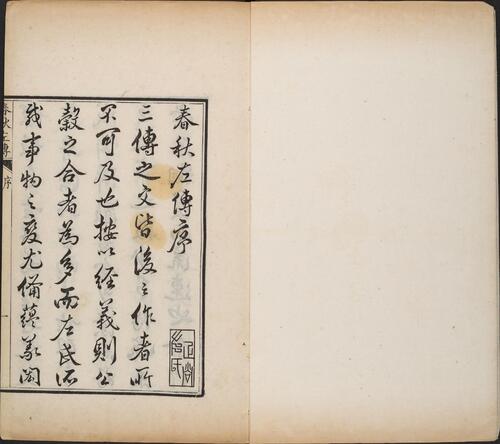 春秋左傳序
三傳之文皆後之作者所
不可及也按以經義則公
穀之合者為多而左氏所
載事物之變尤備蘊義閎
春秋左傳
序
一